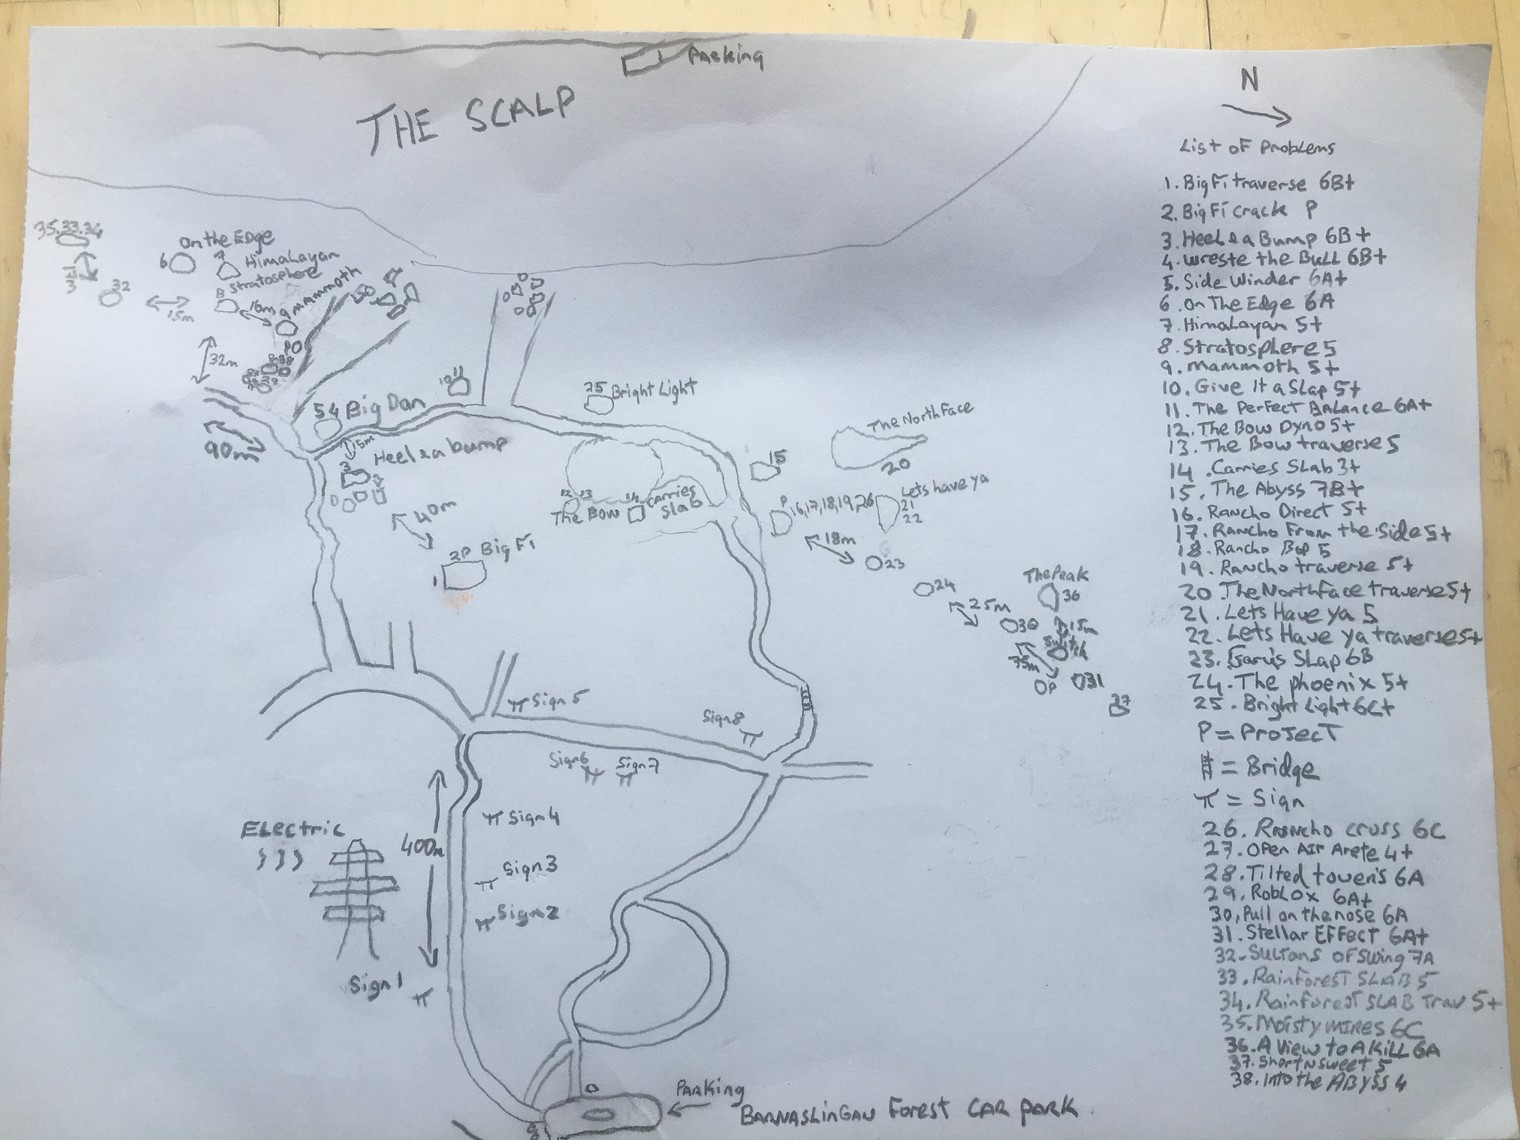 Parking
THE SCALP
N
List of Problems
1. Big Fi traverse 6B+
2. Big Fi crack P
3. Heel & a Bump 6B+
4. wreste the Bull 6B+
5. Side Winder 6A+
6. On The Edge 6A
7. Himalayan 5+
8. Stratosphere 5
9. Mammoth 5+
10. Give It a Slap 5+
11. The Perfect Balance 6A+
12. The Bow Dyno 5+
13. The Bow traverse 5
14. Carries Slab 3+
15. The Abyss 7B+
16. Rancho Direct 5+
17. Rancho From the Side 5+
18. Rancho Bop 5
19. Rancho traverse 5+
20. The Northface traverse 5+
21. Lets Have ya 5
22. Lets Have ya traverse 5+
23. Slap 6B
24. The phoenix 5+
25. Bright Light 6C+
P = Project
= Bridge
= Sign
26. Rancho cross 6C
27. Open Air Arete 4+
28. Tilted towers 6A
29. Roblox 6A+
30. Pull on the nose 6A
31. Stellar Effect 6A+
32. Sultans Of Swing 7A
33. Rainforest SLAB 5
34. Rainforest SLAB Trav 5+
35. Moisty Mires 6C
36. A View to A Kill 6A
37. Short N Sweet 5
38. Into the Abyss 4
35,33,34
32
15m
6
On the Edge
7
Himalayan
8
Stratosphere
10m
9 Mammoth
32m
90m
54 Big Dan
15m
3
Heel & a bump
40m
2P Big Fi
1
25
Bright Light
12 13
The Bow
14
Carries
Slab
15
The Northface
20
P
16,17,18,19,26
Lets have ya
21
22
18m
23
24
25m
30
The Peak
36
15m
75m
P
31
37
Sign 5
Sign 8
Sign 6
Sign 7
Sign 4
Sign 3
Sign 2
Sign 1
400m
Electric
Parking
BARNASLINGAN Forest CAR park.